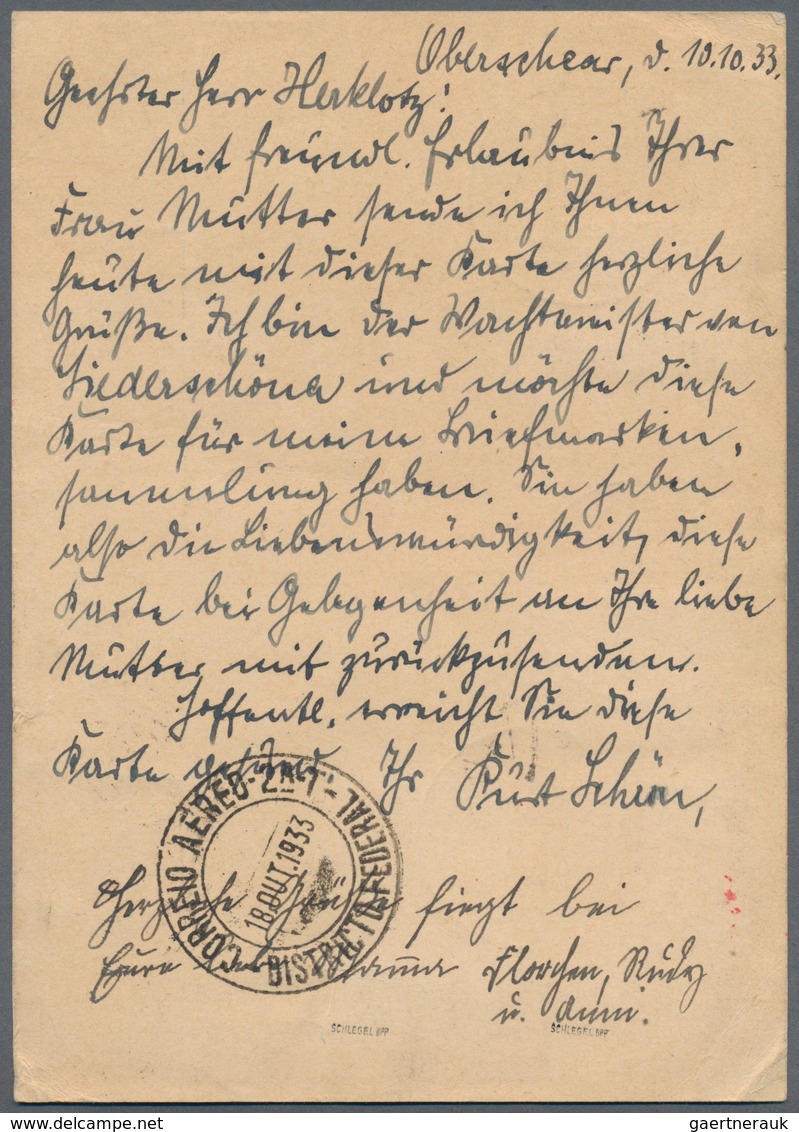 Oberschaar, d. 10.10.33.
Geehrter Herr Herklotz!
Mit freundl. Erlaubnis Ihrer
Frau Mutter sende ich Ihnen
heute mit dieser Karte herzliche
Grüße. Ich bin der Wachtmeister von
Niederschöna und möchte diese
Karte für meine Briefmarken,
sammlung haben. Sie haben
also die Liebenswürdigkeit, diese
Karte bei Gelegenheit an Ihre liebe
Mutter mit zurückzusenden.
Hoffentl. erreicht Sie diese
Karte gesund Ihr Kurt Schön,
CORREIO AEREO - 2A T. - DISTRICTO FEDERAL
18.OUT.1933
Herzliche Grüße fügt bei
Eure Mama Florchen, Rudy
u. Anni.
SCHLEGEL BPP
SCHLEGEL BPP
gaertnerauk